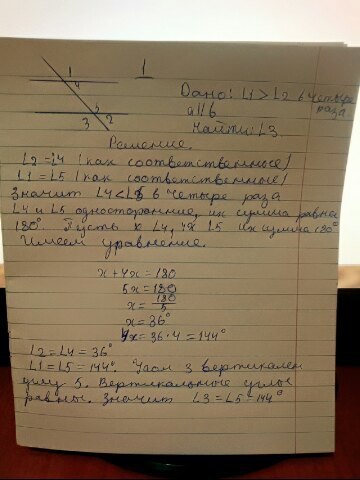 1
1
4
Дано: L1 > L2 в четыре
раза
a||b
5
3 2
Найти: L3.
Решение.
L2 = L4 (как соответственные)
L1 = L5 (как соответственные)
Значит L4 < L5 в четыре раза
L4 и L5 односторонние, их сумма равна
180°. Пусть x L4, 4x L5 их сумма 180°
Имеем уравнение.
x + 4x = 180
5x = 180
x = 180/5
x = 36°
4x = 36 · 4 = 144°
L2 = L4 = 36°
L1 = L5 = 144°. Угол 3 вертикален
углу 5. Вертикальные углы
равны. Значит L3 = L5 = 144°